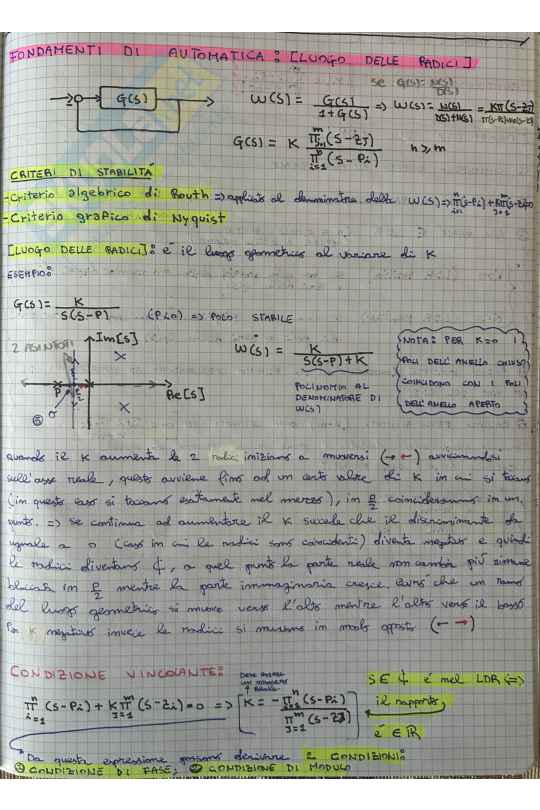 FONDAMENTI DI AUTOMATICA: [LUOGO DELLE RADICI]
se G(s) = N(s)/D(s)
G(s)
W(s) = G(s)/(1+G(s)) => W(s) = N(s)/(D(s)+N(s)) =
G(s) = K ∏_{j=1}^{m}(s-zj) / ∏_{i=1}^{n}(s-pi) n ≥ m
CRITERI DI STABILITÀ
-Criterio algebrico di Routh => applicato al denominatore della W(s) =>
-Criterio grafico di Nyquist
[LUOGO DELLE RADICI]: è il luogo geometrico al variare di K
ESEMPIO:
G(s) = K/(s(s-p)) (p<0) => POLO STABILE
2 ASINTOTI
Im[s]
Re[s]
P
W(s) = K/(s(s-p)+K)
POLINOMIO AL
DENOMINATORE DI
W(s)
NOTA: PER K=0 I
POLI DELL'ANELLO CHIUSO
COINCIDONO CON I POLI
DELL'ANELLO APERTO
quando il K aumenta le 2 radici iniziano a muoversi (→ ←) avvicinandosi
sull'asse reale, questo avviene fino ad un certo valore di K in cui si toccano
(in questo caso si toccano esattamente nel mezzo), in p/2 coincideranno in un
punto. => se continua ad aumentare il K succede che il discriminante da
uguale a 0 (caso in cui le radici sono coincidenti) diventa negativo e quindi
le radici diventano ₵, a quel punto la parte reale non cambia più rimane
bloccata in p/2 mentre la parte immaginaria cresce che un ramo
del luogo geometrico si muove verso l'alto mentre l'altro verso il basso
Per K negativo invece le radici si muovono in modo opposto (← →)
CONDIZIONE VINCOLANTE:
DEVE ESSERE
UN NUMERO
REALE
∏_{i=1}^{n}(s-pi) + K∏_{j=1}^{m}(s-zi) = 0 => [K = - ∏_{i=1}^{n}(s-pi) / ∏_{j=1}^{m}(s-zj)]
s ∈ ₵ è nel LDR <=>
il rapporto,
è ∈ ℝ
Da questa espressione possono derivare 2 CONDIZIONI:
① CONDIZIONE DI FASE; ② CONDIZIONE DI MODULO